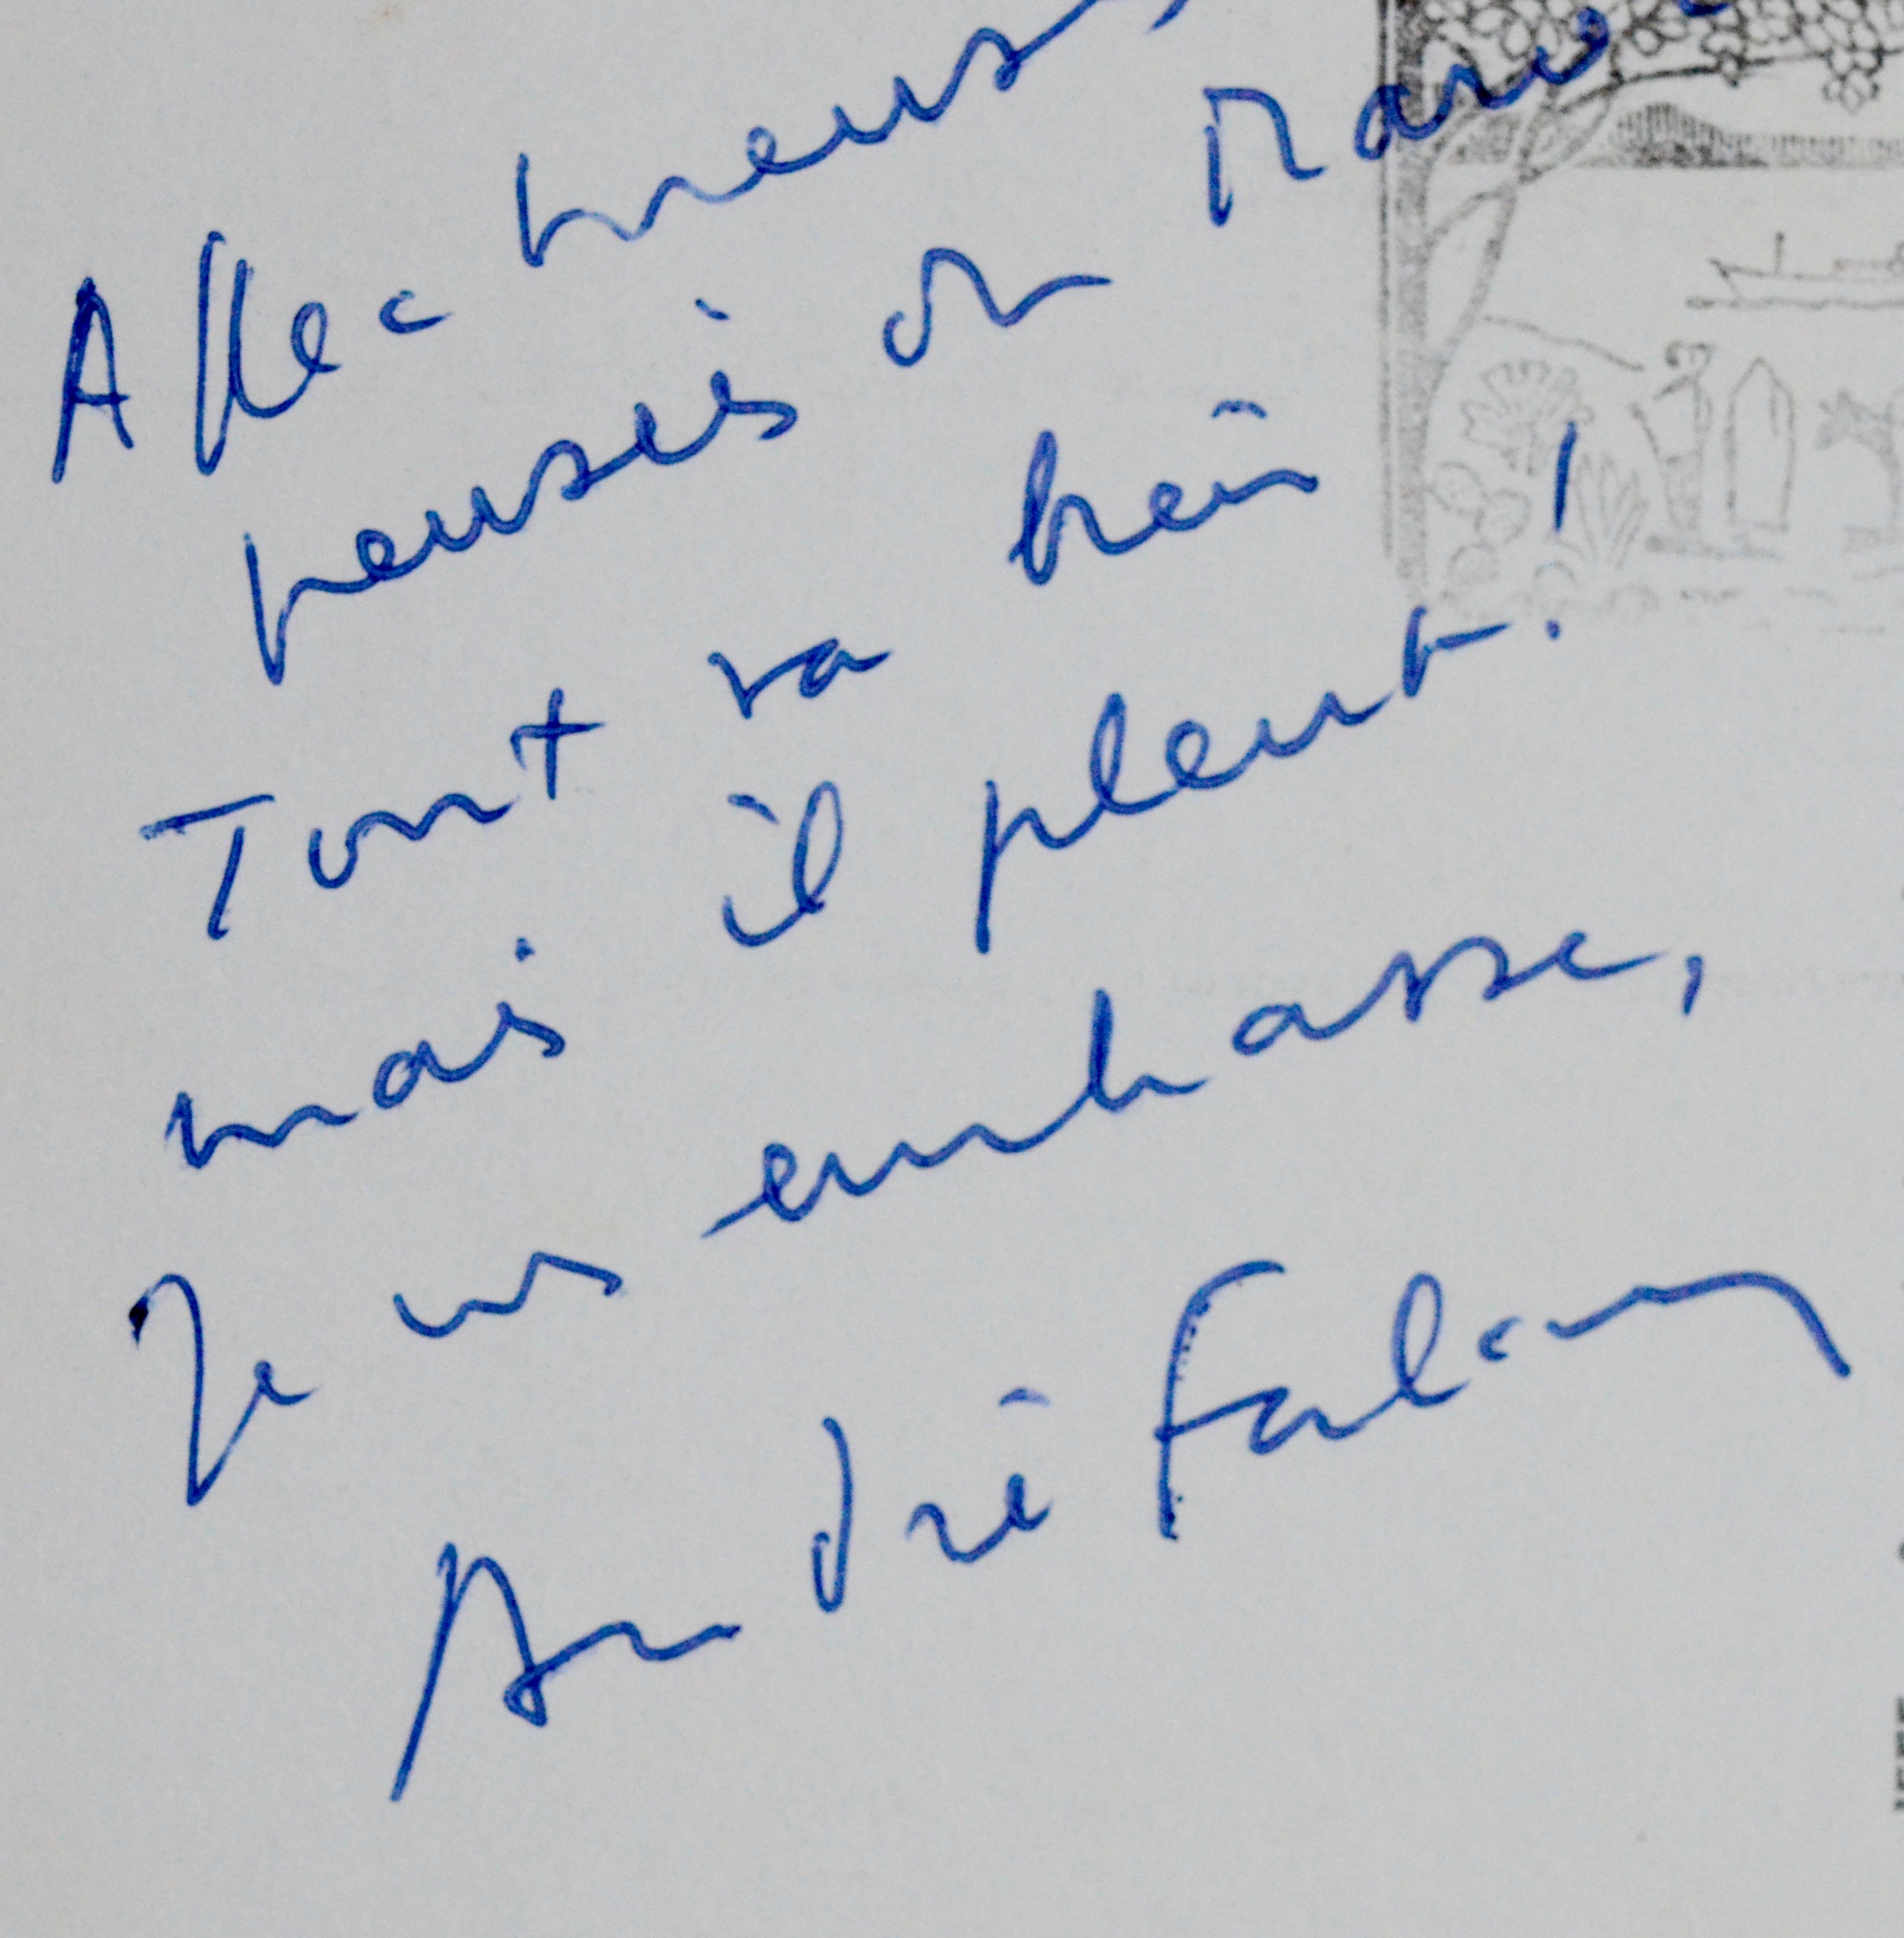 Affectueuses
pensées du Maroc
Tout va bien
mais il pleut !
Je vs embrasse,
André